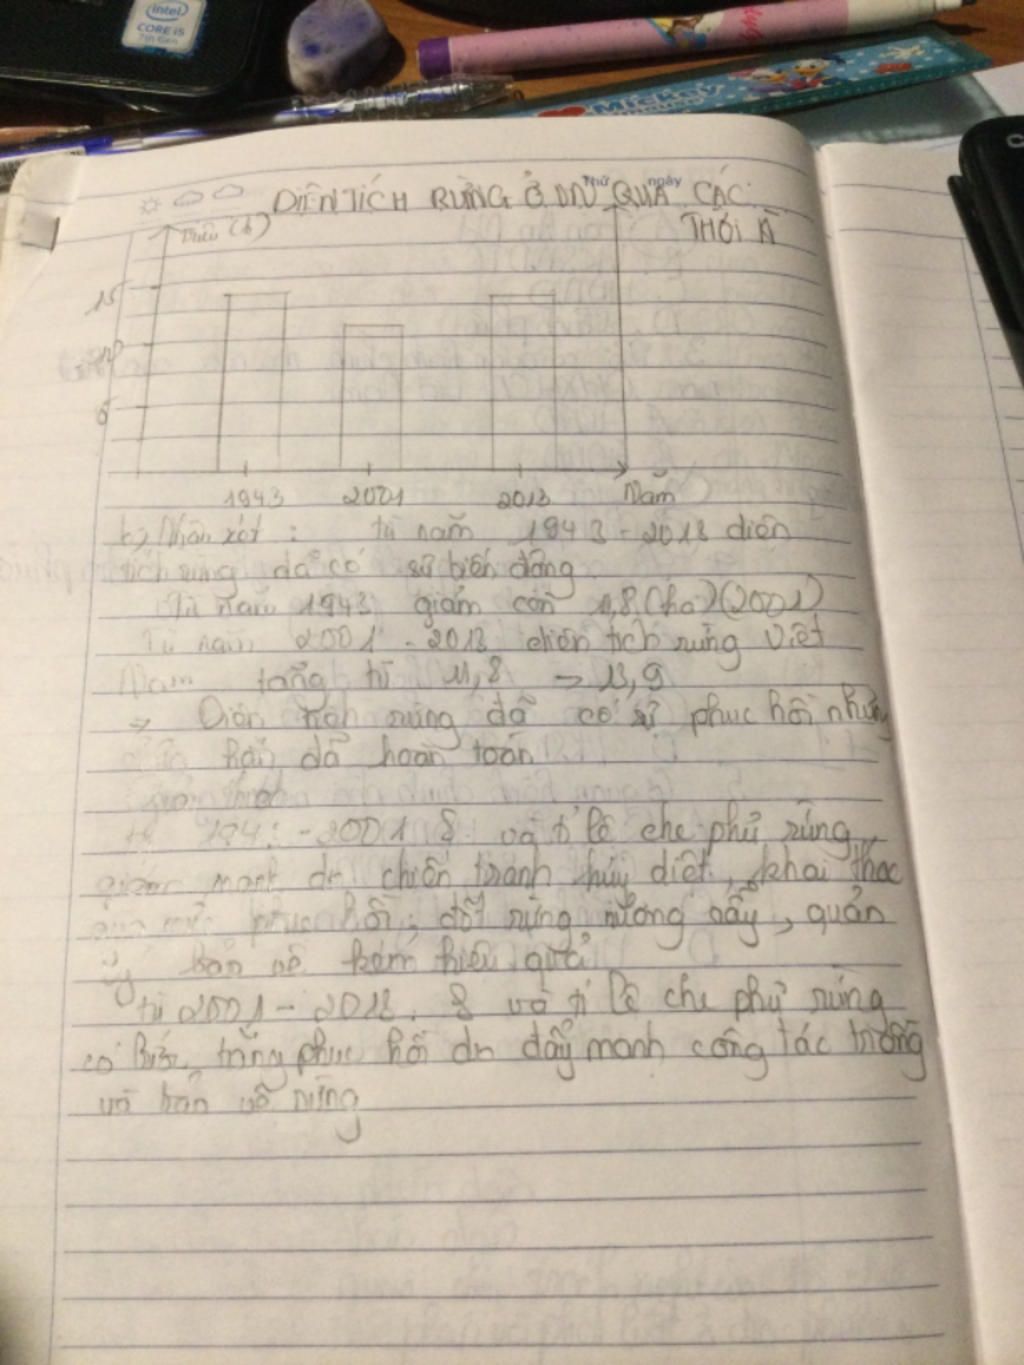 intel
CORE i5
7th Gen
Mickey
Thứ ngày
DIỆN TÍCH RỪNG Ở QUA CÁC
THỜI
15
5
1943 2001 2013 Năm
b) Nhận xét : từ năm 1943 - 2013 diện
tích rừng đã có sự biến động
Từ năm 1943 giảm còn 11,8 (ha) (2001)
Từ năm 2001 - 2013 diện tích rừng Việt
Nam tăng từ 11,8 -> 13,9
=> Diện tích rừng đã có sự phục hồi nhưng
hẳn đã hoàn toàn
giải thích
từ 1943 - 2001 S và tỉ lệ che phủ rừng
giảm mạnh do chiến tranh hủy diệt, khai thác
quá mức phục hồi, đốt rừng nương rẫy, quản
lý bảo vệ kém hiệu quả
từ 2001 - 2013. S và tỉ lệ che phủ rừng
có phục hồi do đẩy mạnh công tác trồng
và bảo vệ rừng